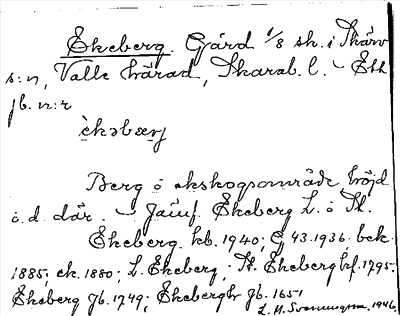 Ekeberg. Gård 1/8 sk. i Skärv
s:n, Valle härad, Skarab. l. – Ett
jb. n:r
èkəbærj
Berg o ekskogsområde, höjd
o. d. där. – Jämf. Ekeberg L. o St.
Ekeberg kb. 1940; G 43. 1936 bek.
1885; ek. 1880; L. Ekeberg; St. Ekeberg hf. 1795.
Ekeberg Jb. 1749; Ekebergh Jb. 1651
1946.